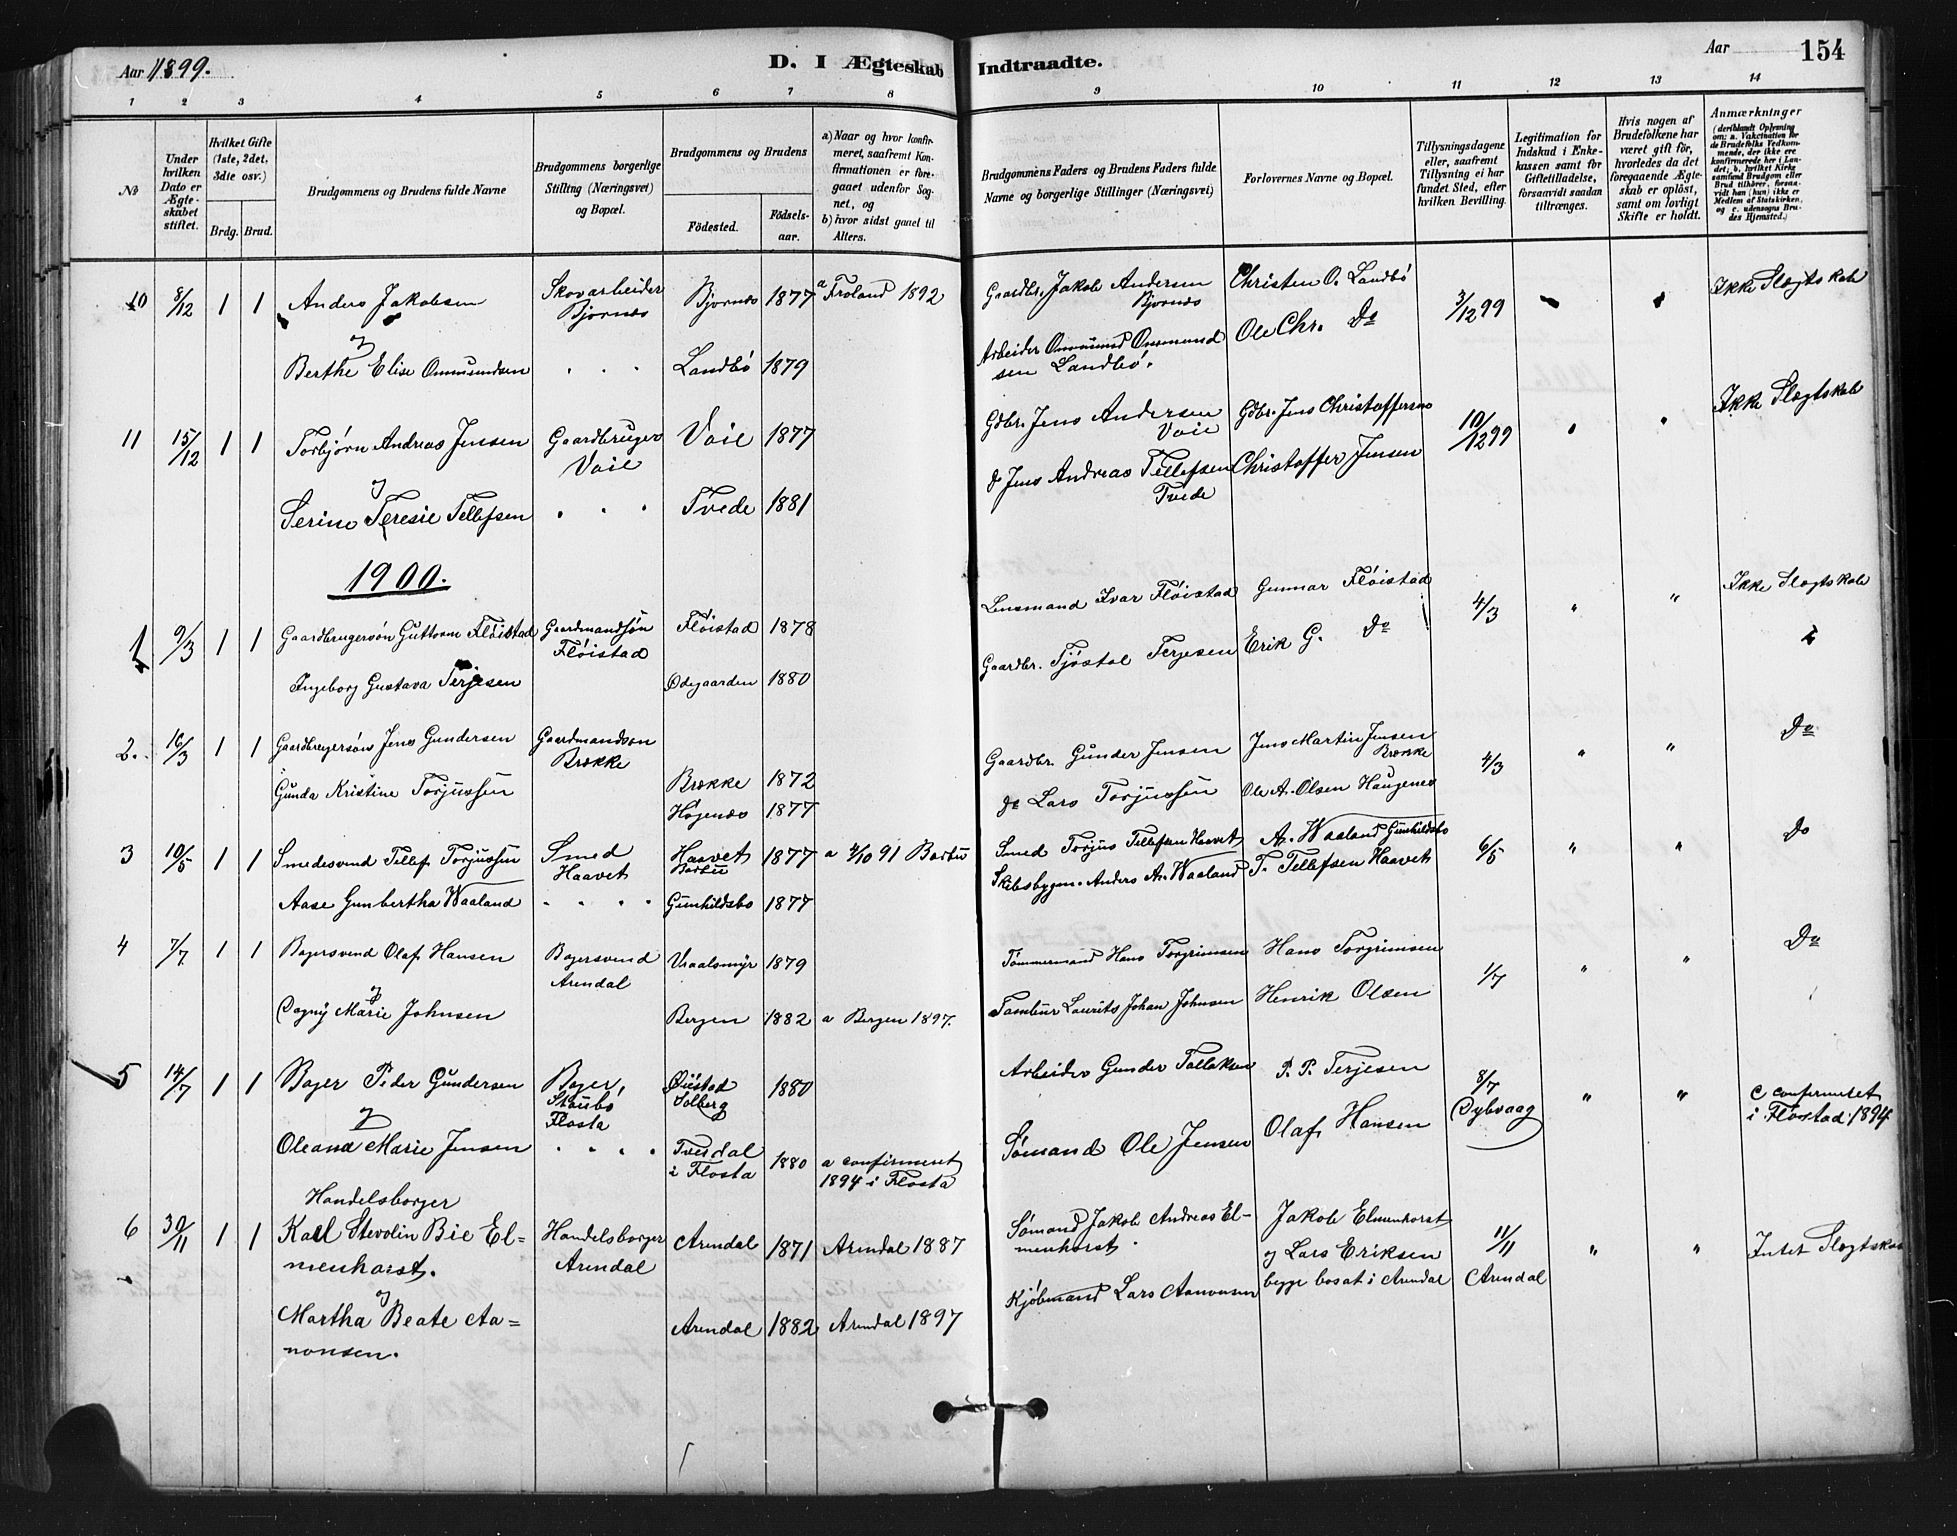 Aar 1899.
D. I Ægteskab Indtraadte.
Aar
154
1 2 3 4 5 6 7 8 9 10 11 12 13 14
No
Under hvilken Dato er Ægteskabet stiftet.
Hvilket Gifte (1ste, 2det, 3die osv.)
Brdg. Brud.
Brudgommens og Brudens fulde Navne
Brudgommens borgerlige Stilling (Næringsvei) og Bopæl.
Brudgommens og Brudens
Födested.
Födselsaar.
a) Naar og hvor konfirmeret, saafremt Konfirmationen er foregaaet udenfor Sognet, og
b) hvor sidst gaaet til Alters.
Brudgommens Faders og Brudens Faders fulde Navne og borgerlige Stillinger (Næringsvei)
Forlovernes Navne og Bopæl.
Tillysningsdagene eller, saafremt Tillysning ei har fundet Sted, efter hvilken Bevilling.
Legitimation for Indskud i Enkekassen samt för Giftetilladelse, forsaavidt saadan tiltrænges.
Hvis nogen af Brudefolkene har været gift för, hvorledes da det foregaaende Ægteskab er oplöst, samt om lovligt Skifte er holdt.
Anmærkninger (deriblandt Oplysning om: a. Vakcination for de Brudefolks Vedkommende, der ikke ere konfirmerede her i Landet; b. hvilket Kirkesamfund Brudgom eller Brud tilhörer, forsaavidt han (hun) ikke er Medlem af Statskirken, og c. udensogns Brudes Hjemsted.)
10 8/12 1 1 Anders Jakobsen Skovarbeider Bjornæs Bjornæs 1877 a Froland 1892 Gaardbr. Jakob Andersen Bjornæs Christen O. Landbö 3/12 99 Ikke Slægtskab
og
Berthe Elise Ommundsen Landbö 1879 Arbeider Ommund Ommundsen Landbö. Ole Chr. Do
11 15/12 1 1 Torbjörn Andreas Jensen Gaardbruger Vaie Vaie 1877 Gdbr. Jens Andersen Vaie Gdbr. Jens Christoffersen 10/12 99 Ikke Slægtskab
og
Serine Teresie Tellefsen Tvede 1881 d Jens Andreas Tellefsen Tvede Christoffer Jensen
1900.
1 9/3 1 1 Gaardbrugersön Guttorm Flöistad Gaardmandsön Flöistad Flöistad 1878 Lensmand Ivar Flöistad Gunnar Flöistad 4/3 " " Ikke Slægtskab
Ingeborg Gustava Terjesen Ødegaarden 1880 Gaardbr. Tjöstol Terjesen Erik G. Do
2. 16/3 1 1 Gaardbrugersöns Jens Gundersen Gaardmandsön Brække Brække 1872 Gaardbr. Gunder Jensen Jens Martin Jensen Brække 4/3 " " Do
Gunda Kristine Torjussen Högenæs 1877 do Lars Torjussen Ole A. Olsen Haugenes
3 10/5 1 1 Smedesvend Tellef Torjussen Smed Haavet Haavet Barbu 1877 a 4/10 91 Barbu Smed Torjus Tellefsen Haavet A. Waaland Gunhildsbo 6/5 " " Do
Aase Gunbertha Waaland Gunhildsbo 1877 Skibsbygm. Anders A. Waaland T. Tellefsen Haavet
4 7/7 1 1 Bagersvend Olaf Hansen Bagersvend Arendal Vraalsmyr 1879 Tömmermand Hans Torgrimsen Hans Torgrimsen 1/7 " " Do
og
Dagny Marie Johnsen Bergen 1882 a Bergen 1897. Tambur Laurits Johan Johnsen Henrik Olsen
5 14/7 1 1 Bager Peder Gundersen Bager, Staubö Flosta Øiestad Solberg 1880 Arbeider Gunder Tallaksen P. P. Terjesen 8/7 Dybvaag " " c confirmeret i Flostad 1894
og
Oleana Marie Jensen Tverdal i Flosta 1880 a confirmeret 1894 i Flosta Sömand Ole Jensen Olaf Hansen
Handelsborger
6 30/11 1 1 Karl Stevolin Bie Elmenhorst. Handelsborger Arendal Arendal 1871 Arendal 1887 Sömand Jakob Andreas Elmenhorst. Jakob Elmenhorst og Lars Eriksen begge bosat i Arendal 11/11 Arendal " " Intet Slægtskab
og
Martha Beate Aanonsen. Arendal 1882 Arendal 1897 Kjöbmand Lars Aanonsen